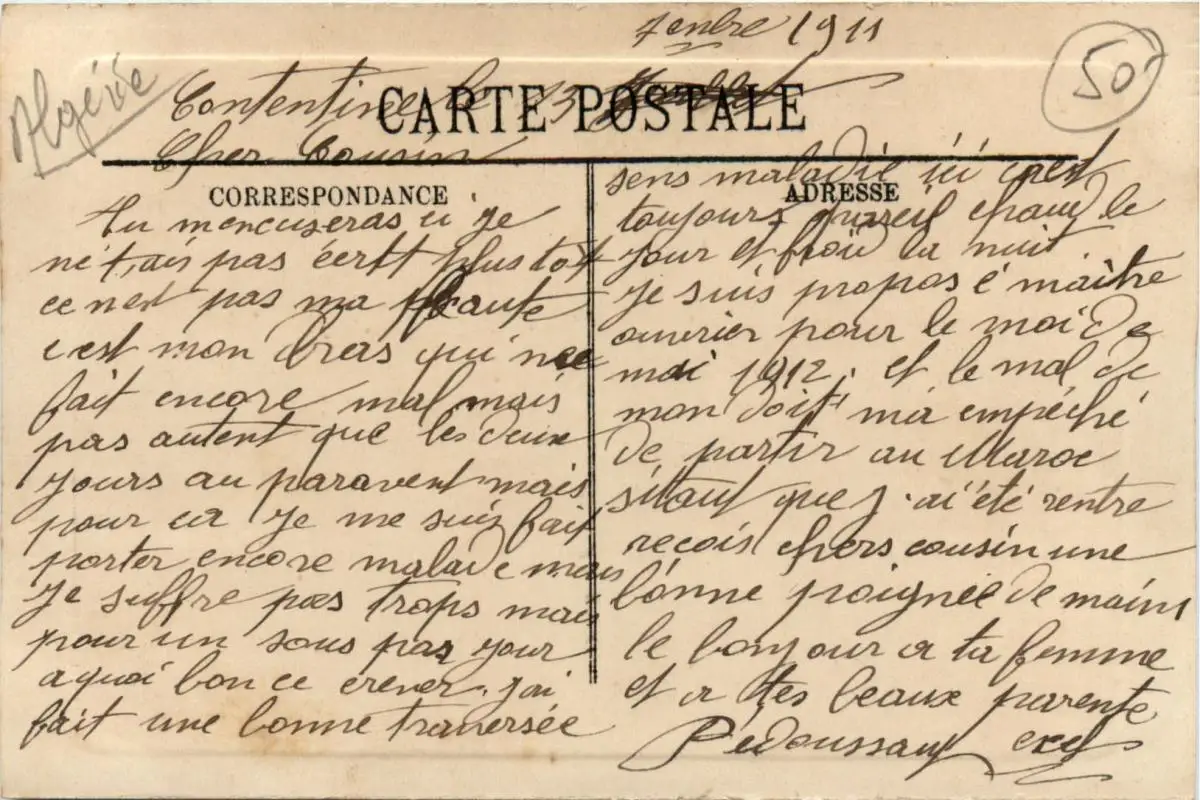 7enbre 1911
Algérie
50
Contentine le 13
CARTE POSTALE
Cher Cousin
CORRESPONDANCE
Tu mencuseras si je
ne t,ais pas écrit plus tôt
ce nest pas ma faute
c'est mon bras qui me
fait encore mal mais
pas autent que les deux
jours au paravent mais
pour ca je me suis fait
porter encore malade mais
je suffre pas trops mais
pour un sous par jour
a quoi bon ce crever. j'ai
fait une bonne traversée
ADRESSE
sens maladie ici c'est
toujours pareil chaud le
jour et froid la nuit
je suis propos é maitre
ouvrier pour le moi de
mai 1912. et le mal de
mon doit m'a empéché
de partir au Maroc
sitaut que j'ai été rentre
recois chers cousin une
bonne poignée de mains
le bonjour a ta femme
et a tes beaux parente
Pédoussaut